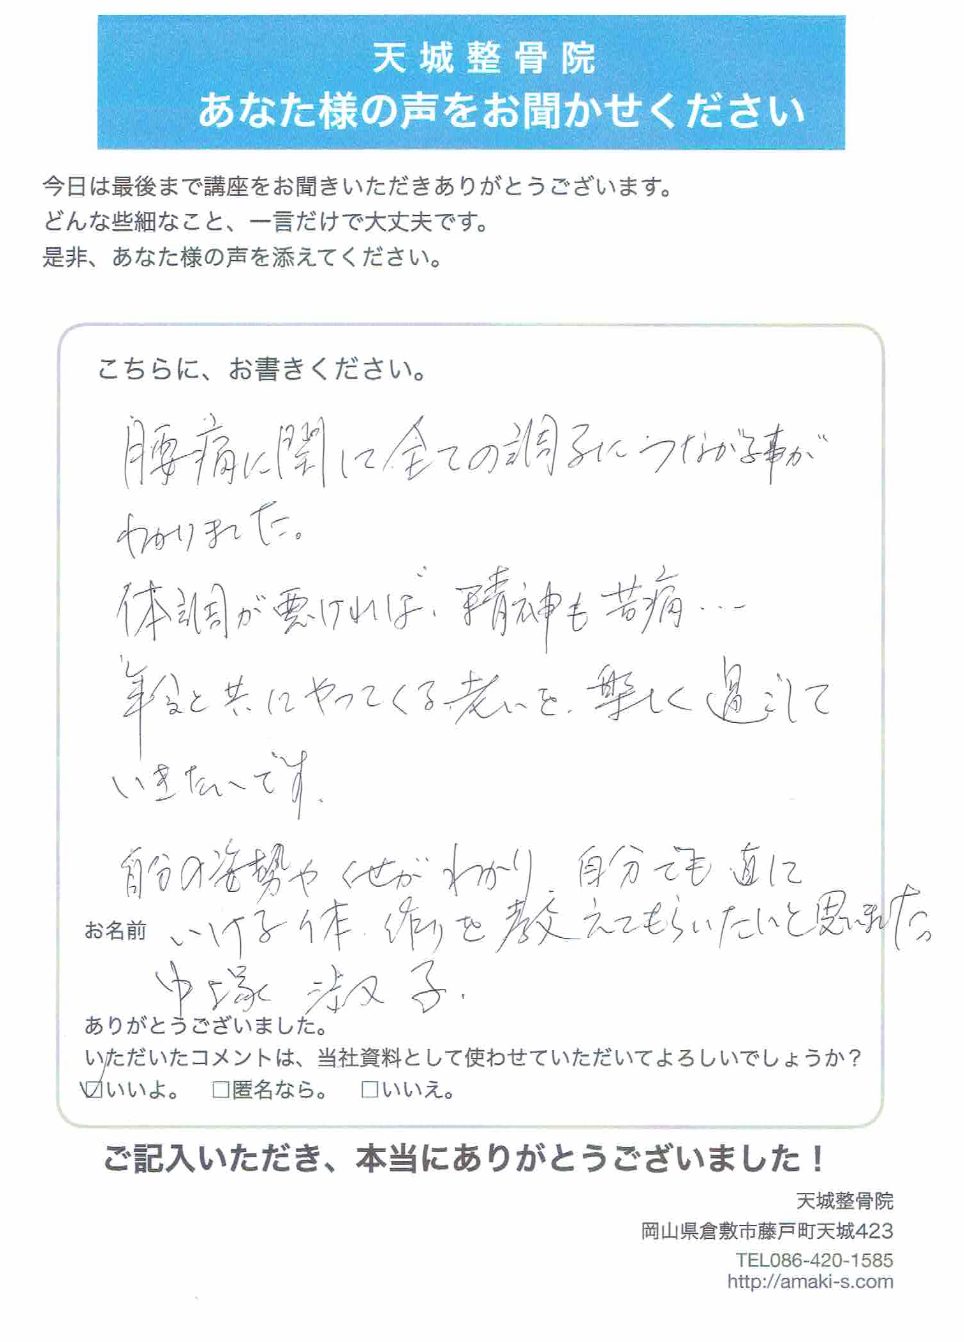 天城整骨院
あなた様の声をお聞かせください
今日は最後まで講座をお聞きいただきありがとうございます。
どんな些細なこと、一言だけで大丈夫です。
是非、あなた様の声を添えてください。
こちらに、お書きください。
腰痛に関して全ての調子につながる事が
わかりました。
体調が悪ければ、精神も苦痛…
年令と共にやってくる老いを、楽しく過ごして
いきたいです。
自分の姿勢やくせがわかり 自分でも直に
お名前 いける体作りを教えてもらいたいと思いました。
中塚 淑子.
ありがとうございました。
いただいたコメントは、当社資料として使わせていただいてよろしいでしょうか?
☑いいよ。 □匿名なら。 □いいえ。
ご記入いただき、本当にありがとうございました!
天城整骨院
岡山県倉敷市藤戸町天城423
TEL086-420-1585
http://amaki-s.com